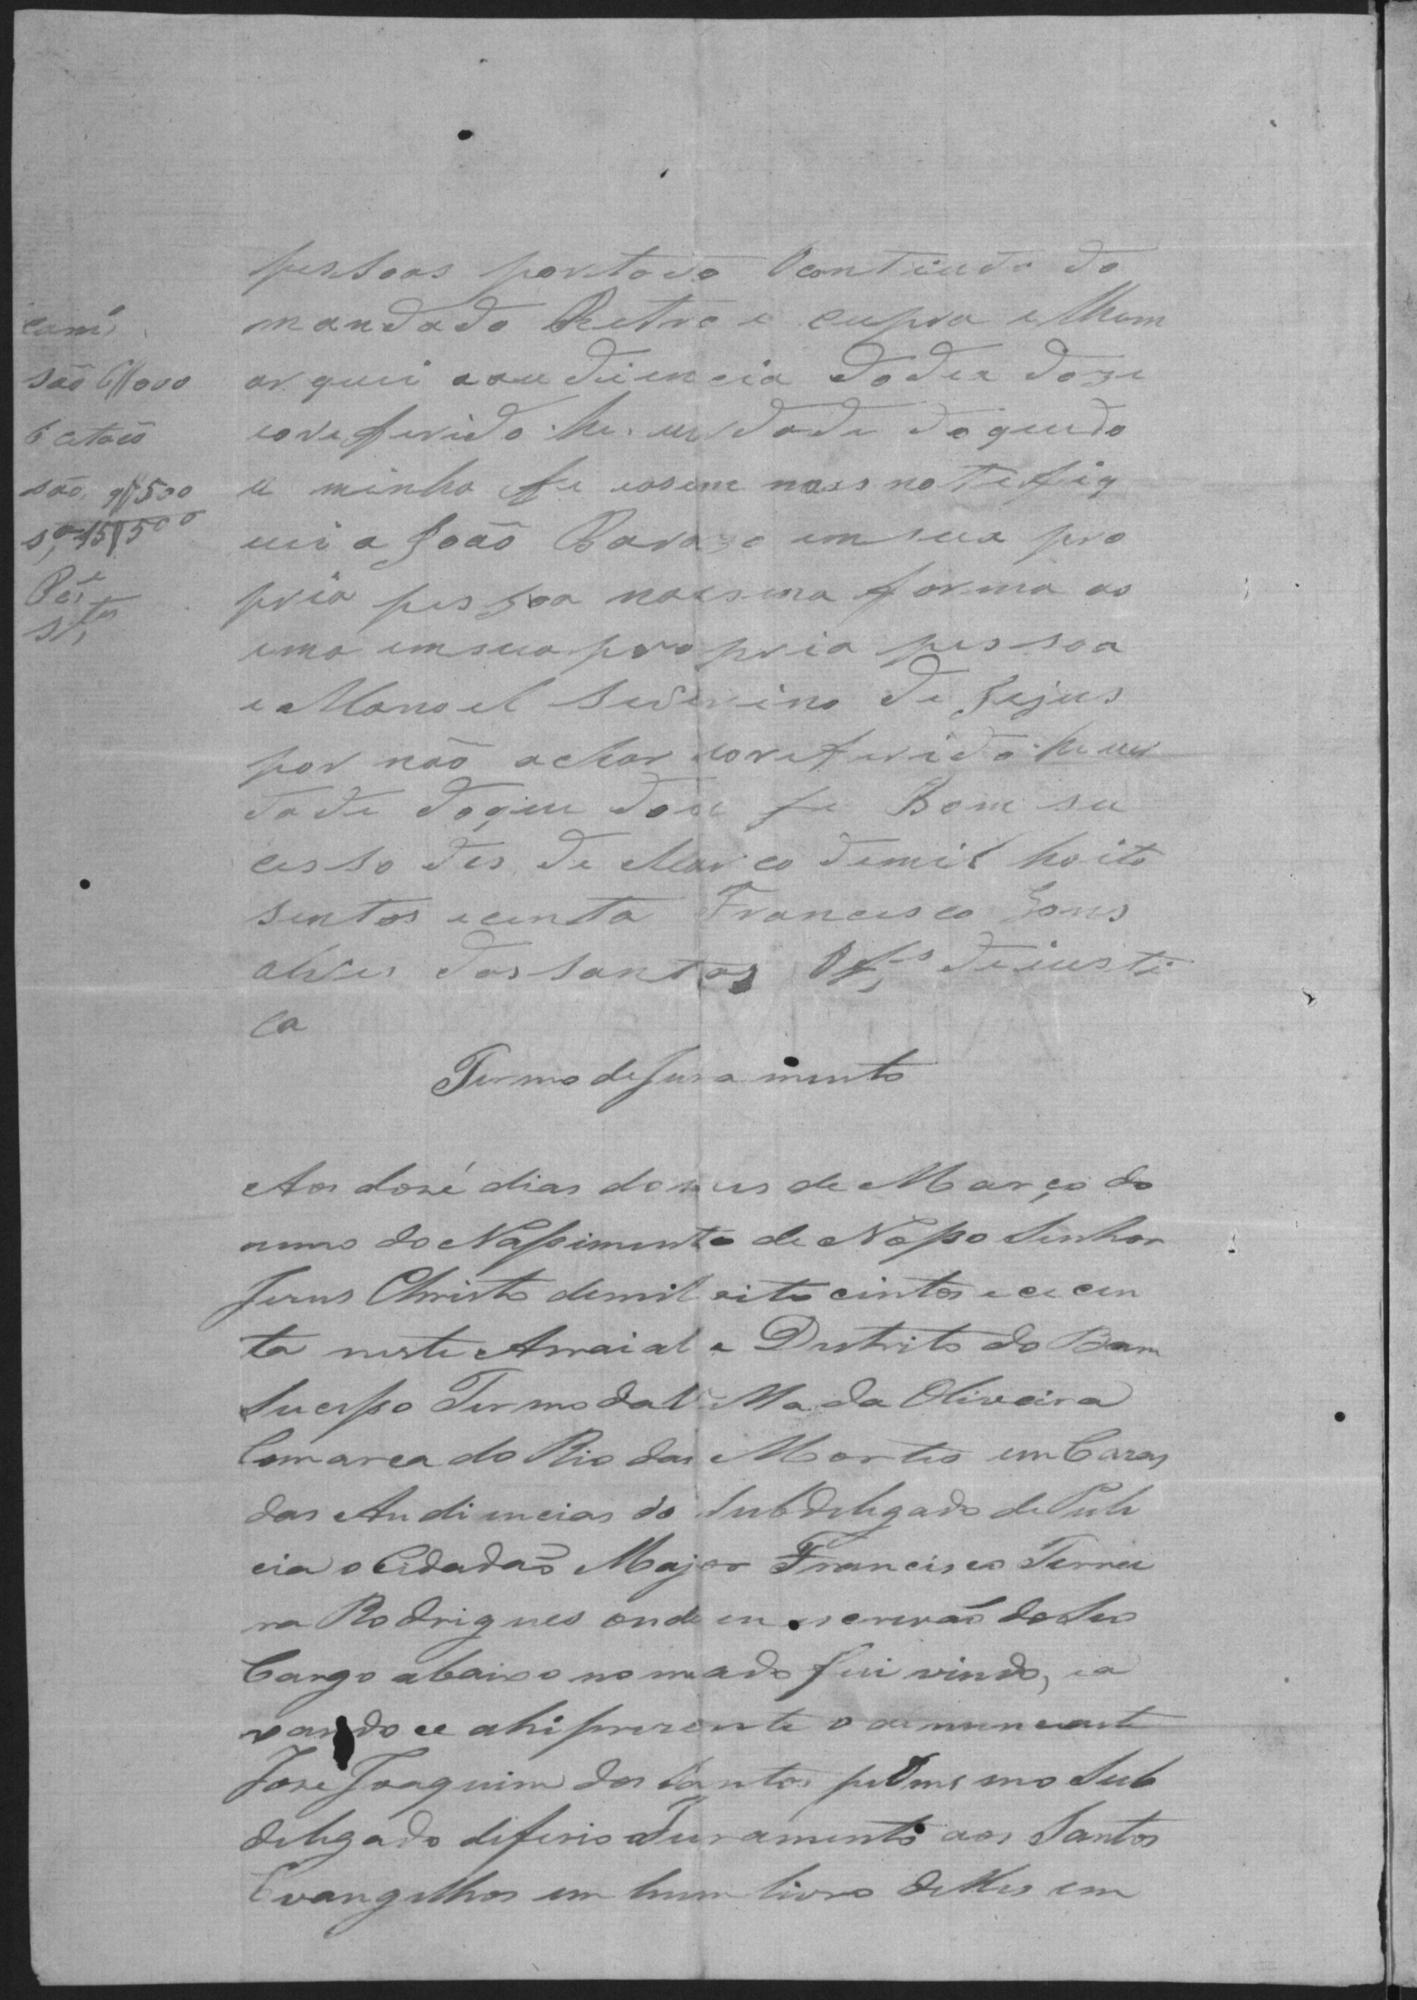 pessoas portodo Ocontiudo do
mandado Retro e cupra elhem
ar quei a audiencia dodia doze
ioreferido he. verdade doquedo
u minha fe easim mais notefiq
uei a João Bavozo emsua pro
pria pessoa maesma forma as
ema emsua propria pessoa
e Manoel Severino de Jejus
por não achar ioreferido he ver
dade doque dou fe Bom su
cesso des de Marco demil hoito
sentos ecenta Francisco Gons
alves dos santos Of.es dejusti
ca
cami
são 6//000
e citacõ
são 9//500
s.a 15//500
S.tos
Termo de Juramento
Aos dose dias do mes de Março do
anno do Nassimento de Nosso Senhor
Jesus Christo demil oito cintos e cecen
ta neste Arraial e Destrito do Bom
Sucesso Termo da V.ª da Oliveira
Comarca do Rio das Mortes em Cazas
das Audiencias do Subdelegado de Puli
cia o Cidadão Major Francisco Ferrei
ra Rodrigues onde eu escrivão do Seo
Cargo abaixo nomeado fui vindo, ea
xando ce ahi prezente o denunciante
Jose Joaquim dos Santos pelo mesmo Sub
delegado diferio o Juramento aos Santos
Evangelhos em hum livro delles em